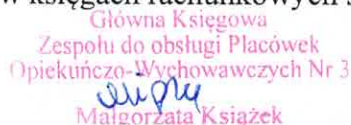 w księgach rachunkowych s
Główna Księgowa
Zespołu do obsługi Placówek
Opiekuńczo-Wychowawczych Nr 3
Małgorzata Książek